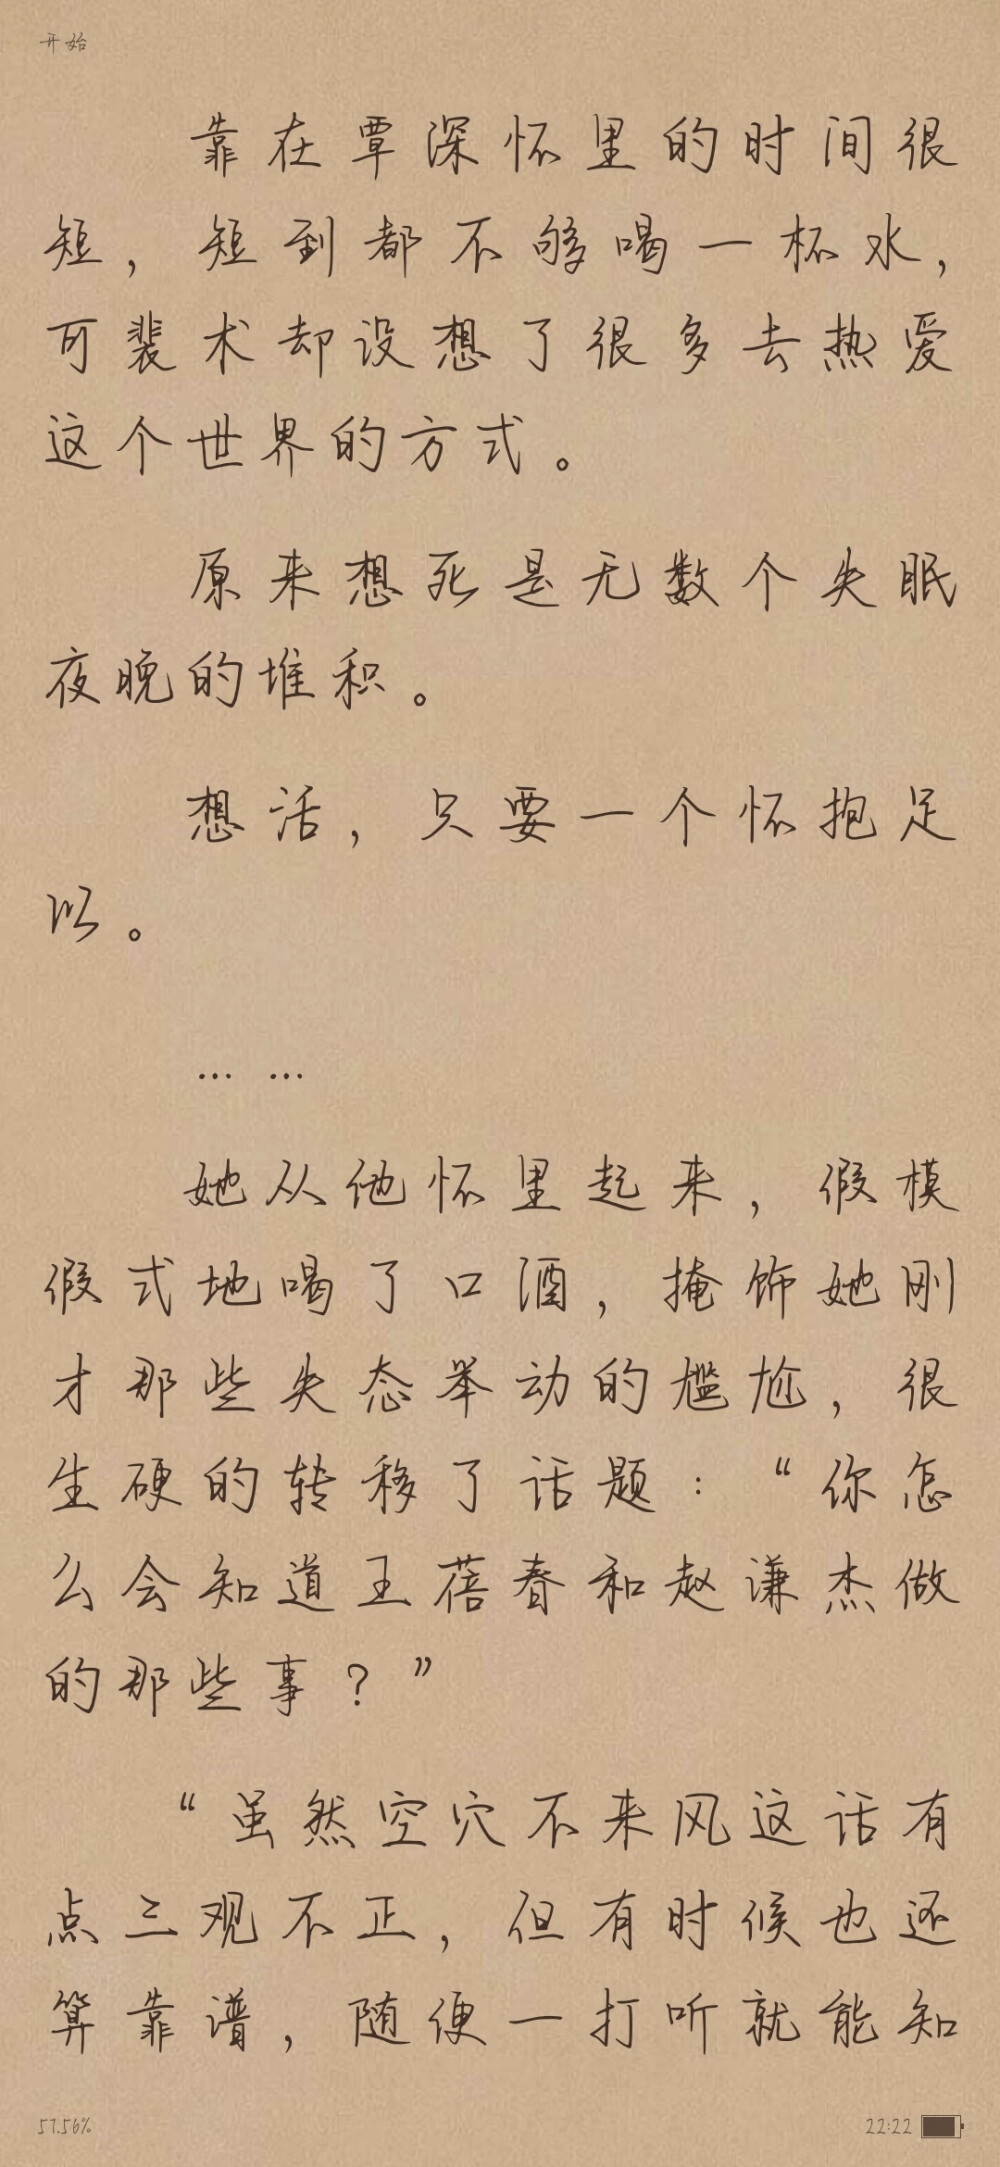 开始
靠在覃深怀里的时间很
短，短到都不够喝一杯水，
可裴术却设想了很多去热爱
这个世界的方式。
原来想死是无数个失眠
夜晚的堆积。
想活，只要一个怀抱足
以。
……
她从他怀里起来，假模
假式地喝了口酒，掩饰她刚
才那些失态举动的尴尬，很
生硬的转移了话题：“你怎
么会知道王蓓春和赵谦杰做
的那些事？”
“虽然空穴不来风这话有
点三观不正，但有时候也还
算靠谱，随便一打听就能知
57.56%
22:22